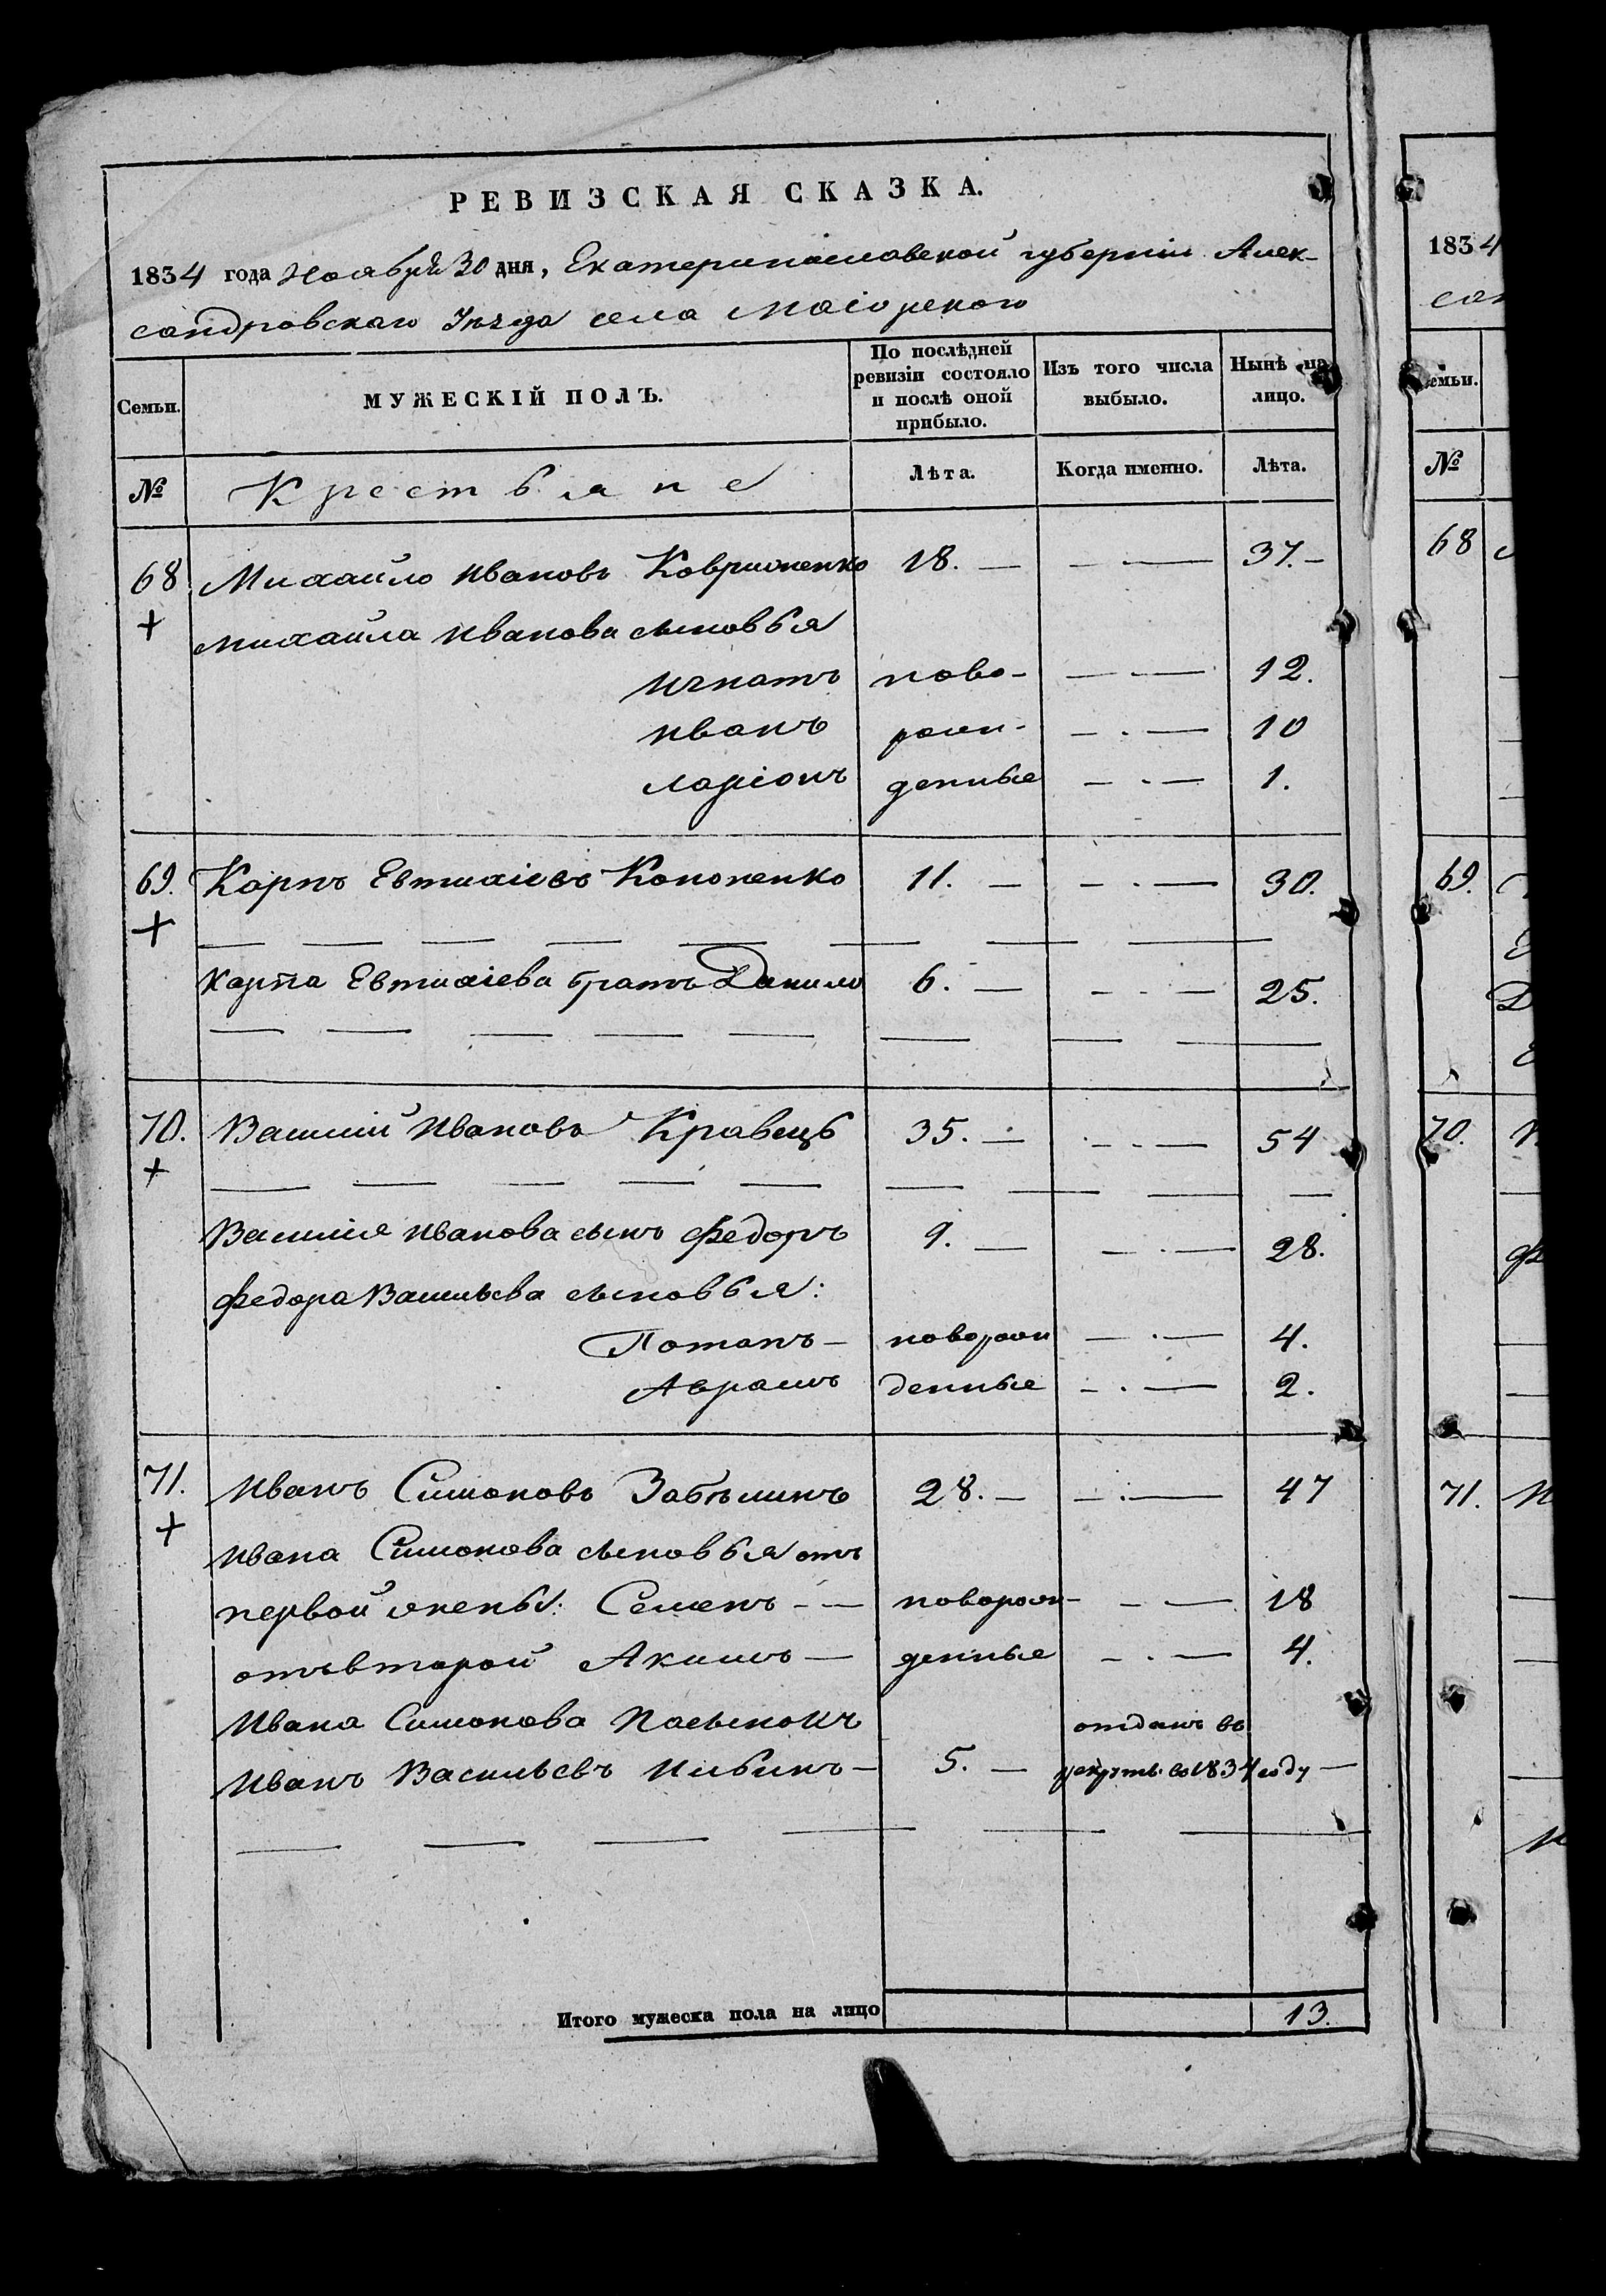 РЕВИЗСКАЯ СКАЗКА.
1834 года Ноября 30 дня, Екатеринославской губерніи Алек-
сандровскаго Уѣзда села Маіорского
Семьи.
МУЖЕСКІЙ ПОЛЪ.
По послѣдней ревизіи состояло и послѣ оной прибыло.
Изъ того числа выбыло.
Нынѣ на лицо.
№ Крестьяне Лѣта. Когда именно. Лѣта.
68 Михайло Ивановъ 18. — — — 37. —
+ Михайла Иванова сыновья
Игнатъ ново- — — 12.
Иванъ рож- — . — 10
Ларіонъ денные — . — 1.
69. Карпъ Евтихіевъ Кононенко 11. — — . — 30.
+
Карпа Евтихіева братъ Данило 6. — — . — 25.
70. Василій Ивановъ Кравецъ 35. — — . — 54
+
Василія Иванова сынъ Федоръ 9. — — . — 28.
Федора Васильева сыновья:
Потапъ — новорож — . — 4.
Аврамъ денные — . — 2.
71. Иванъ Симоновъ Забѣлинъ 28. — — . — 47
+ Ивана Симонова сыновья отъ
первой жены: Семенъ — — новорож- — — 18
отъ второй Акимъ — денные — . — 4.
Ивана Симонова Пасынокъ отданъ въ
Иванъ Васильевъ 5. — рекруты во 1834 году —
Итого мужеска пола на лицо 13.
1834
сан
Семьи.
№
68
69.
70.
71.